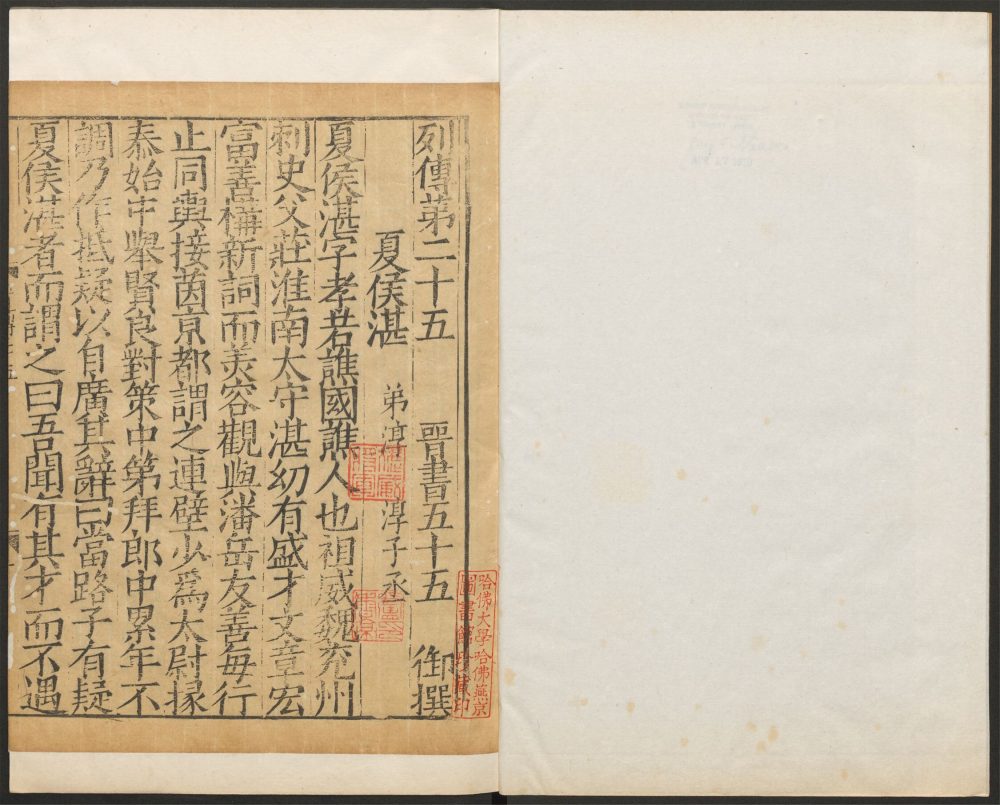 列傳第二十五 晋書五十五 御撰
夏侯湛 弟淳 淳子承
夏侯湛字孝若譙國譙人也祖威魏兖州
刺史父莊淮南太守湛幼有盛才文章宏
富善構新詞而美容觀與潘岳友善每行
止同輿接茵京都謂之連璧少爲太尉掾
泰始中舉賢良對策中第拜郎中累年不
調乃作抵疑以自廣其辭曰當路子有疑
夏侯湛者而謂之曰吾聞有其才而不遇
哈佛大學哈佛燕京
圖書館珍藏印